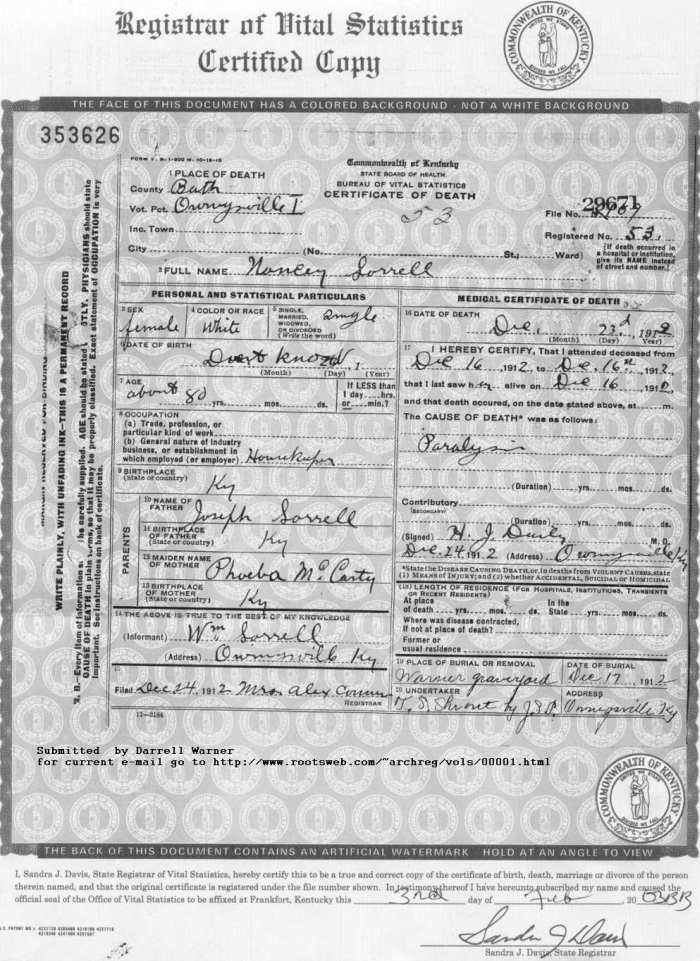 Registrar of Vital Statistics
Certified Copy
COMMONWEALTH OF KENTUCKY
THE FACE OF THIS DOCUMENT HAS A COLORED BACKGROUND - NOT A WHITE BACKGROUND
353626
WRITE PLAINLY, WITH UNFADING INK—THIS IS A PERMANENT RECORD
1 PLACE OF DEATH
County Bath
Vot. Pct. Owingsville I
Inc. Town
City (No. St.; Ward)
Commonwealth of Kentucky
STATE BOARD OF HEALTH.
BUREAU OF VITAL STATISTICS
CERTIFICATE OF DEATH
53
29671
File No.
Registered No. 53
[If death occurred in
a hospital or institution,
give its NAME instead
of street and number.]
2 FULL NAME Nancy Sorrell
PERSONAL AND STATISTICAL PARTICULARS
3 SEX
female
4 COLOR OR RACE
White
5 SINGLE,
MARRIED,
WIDOWED,
OR DIVORCED
(Write the word)
Single
6 DATE OF BIRTH
Dont know
(Month) (Day) (Year)
7 AGE
about 80
yrs. mos. ds.
If LESS than
1 day hrs.
or min.?
8 OCCUPATION
(a) Trade, profession, or
particular kind of work
(b) General nature of industry
business, or establishment in
which employed (or employer) Housekeeper
9 BIRTHPLACE
(State or country)
Ky
PARENTS
10 NAME OF
FATHER Joseph Sorrell
11 BIRTHPLACE
OF FATHER
(State or country) Ky
12 MAIDEN NAME
OF MOTHER Phoeba McCarty
13 BIRTHPLACE
OF MOTHER
(State or country) Ky
14 THE ABOVE IS TRUE TO THE BEST OF MY KNOWLEDGE
(Informant) Wm Sorrell
(Address) Owingsville Ky
15
Filed Dec 24, 1912 Mrs. Alex.
REGISTRAR
11-3184
MEDICAL CERTIFICATE OF DEATH
16 DATE OF DEATH
Dec. 23d 1912
(Month) (Day) (Year)
17 I HEREBY CERTIFY, That I attended deceased from
Dec 16, 1912, to Dec. 16, 1912,
that I last saw her alive on Dec 16 1912,
and that death occurred, on the date stated above, at m.
The CAUSE OF DEATH* was as follows:
Paralysis
(Duration) yrs. mos. ds.
Contributory
(SECONDARY)
(Duration) yrs. mos. ds.
(Signed) H. J. M. D.
Dec. 24, 1912 (Address) Owingsville Ky
*State the DISEASE CAUSING DEATH, or, in deaths from VIOLENT CAUSES, state
(1) MEANS OF INJURY; and (2) whether ACCIDENTAL, SUICIDAL or HOMICIDAL.
(18) LENGTH OF RESIDENCE (FOR HOSPITALS, INSTITUTIONS, TRANSIENTS
OR RECENT RESIDENTS)
At place
of death yrs. mos. ds. In the
State yrs. mos. ds.
Where was disease contracted,
if not at place of death?
Former or
usual residence
19 PLACE OF BURIAL OR REMOVAL
Warner graveyard
DATE OF BURIAL
Dec 17, 1912
20 UNDERTAKER
ADDRESS
Owingsville Ky
Submitted by Darrell Warner
for current e-mail go to http://www.rootsweb.com/~archreg/vols/00001.html
COMMONWEALTH OF KENTUCKY
THE BACK OF THIS DOCUMENT CONTAINS AN ARTIFICIAL WATERMARK - HOLD AT AN ANGLE TO VIEW
I, Sandra J. Davis, State Registrar of Vital Statistics, hereby certify this to be a true and correct copy of the certificate of birth, death, marriage or divorce of the person
therein named, and that the original certificate is registered under the file number shown. In testimony thereof I have hereunto subscribed my name and caused the
official seal of the Office of Vital Statistics to be affixed at Frankfort, Kentucky this 3RD day of Feb, 20 03
Sandra J Davis
Sandra J. Davis, State Registrar